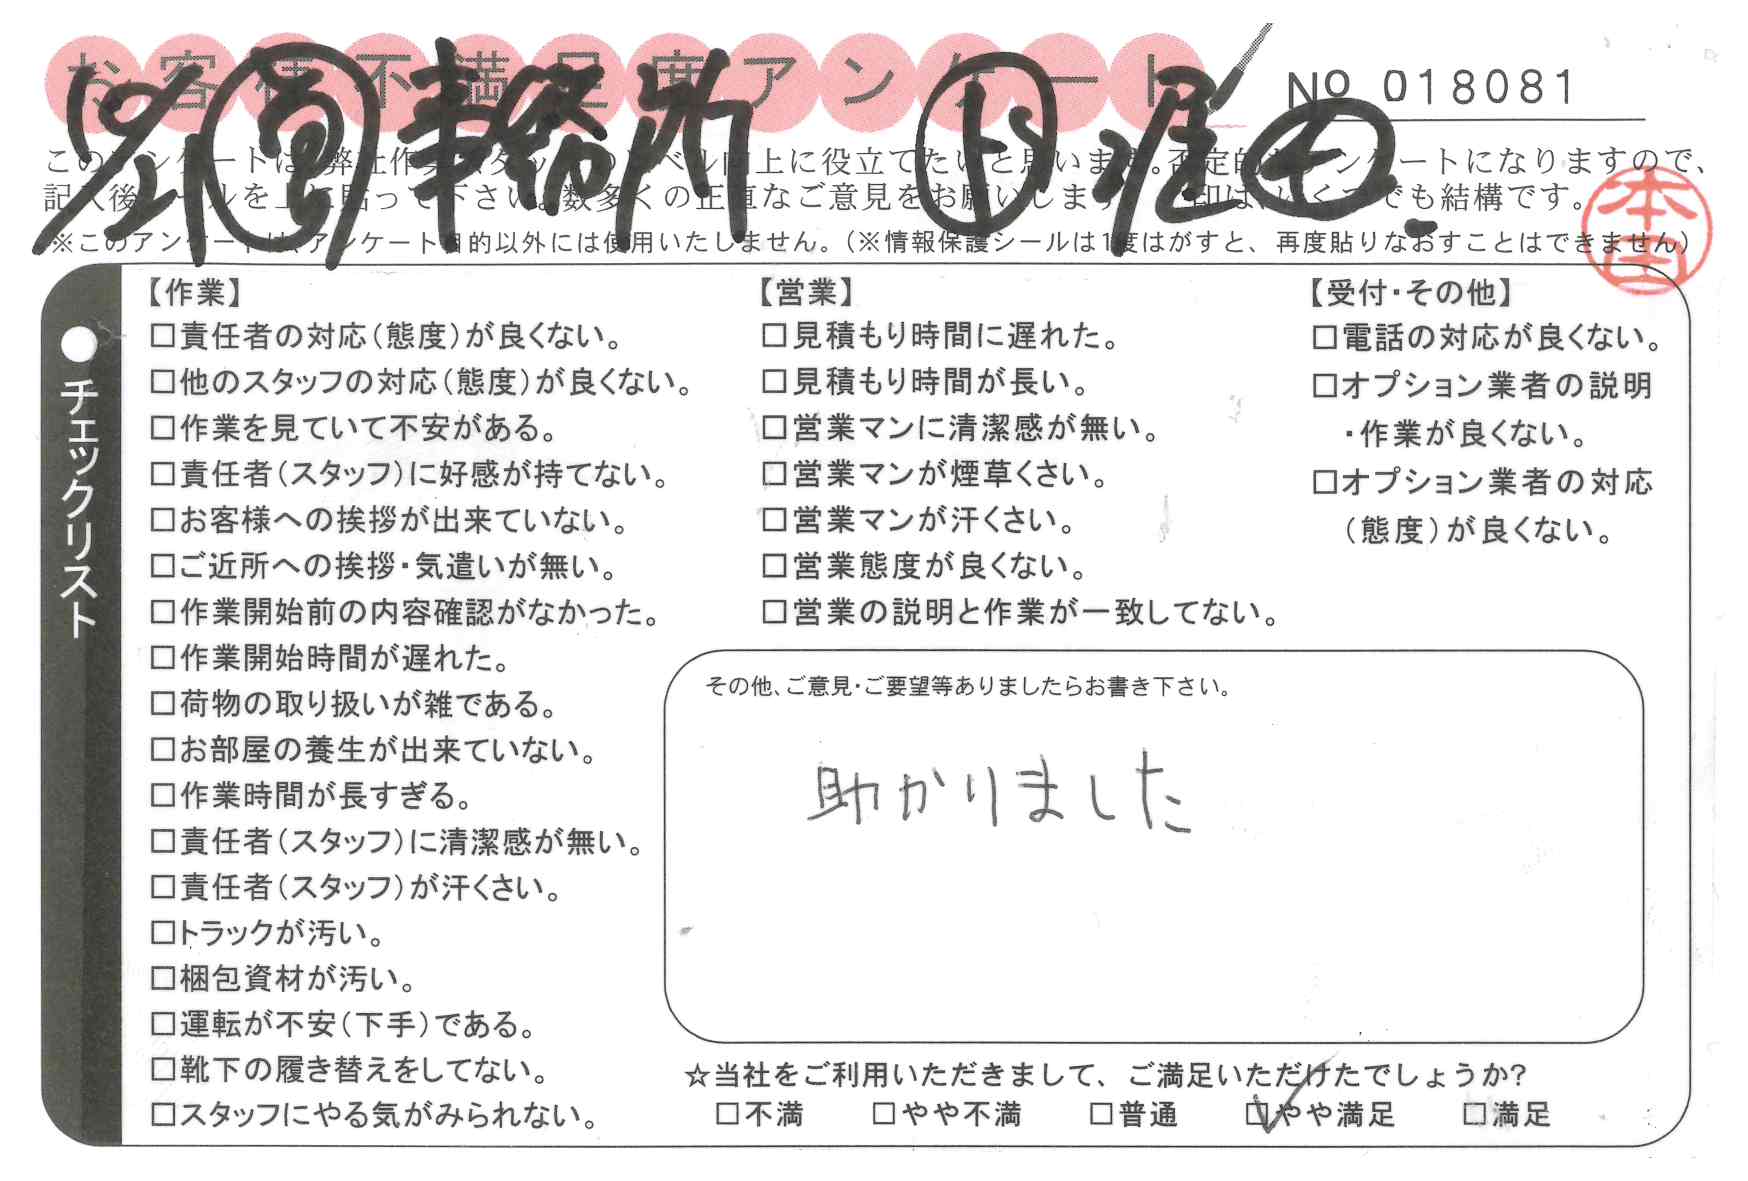 お客様不満足度アンケート
事務所
No 018081
このアンケートは、弊社作業スタッフのレベル向上に役立てたいと思います。否定的なアンケートになりますので、
記入後シールを上に貼って下さい。数多くの正直なご意見をお願いします。 印は、いくつでも結構です。
※このアンケートは、アンケート目的以外には使用いたしません。(※情報保護シールは1度はがすと、再度貼りなおすことはできません)
●チェックリスト
【作業】
□責任者の対応(態度)が良くない。
□他のスタッフの対応(態度)が良くない。
□作業を見ていて不安がある。
□責任者(スタッフ)に好感が持てない。
□お客様への挨拶が出来ていない。
□ご近所への挨拶・気遣いが無い。
□作業開始前の内容確認がなかった。
□作業開始時間が遅れた。
□荷物の取り扱いが雑である。
□お部屋の養生が出来ていない。
□作業時間が長すぎる。
□責任者(スタッフ)に清潔感が無い。
□責任者(スタッフ)が汗くさい。
□トラックが汚い。
□梱包資材が汚い。
□運転が不安(下手)である。
□靴下の履き替えをしてない。
□スタッフにやる気がみられない。
【営業】
□見積もり時間に遅れた。
□見積もり時間が長い。
□営業マンに清潔感が無い。
□営業マンが煙草くさい。
□営業マンが汗くさい。
□営業態度が良くない。
□営業の説明と作業が一致してない。
【受付・その他】
□電話の対応が良くない。
□オプション業者の説明
・作業が良くない。
□オプション業者の対応
(態度)が良くない。
その他、ご意見・ご要望等ありましたらお書き下さい。
助かりました
☆当社をご利用いただきまして、ご満足いただけたでしょうか?
□不満 □やや不満 □普通 ☑やや満足 □満足